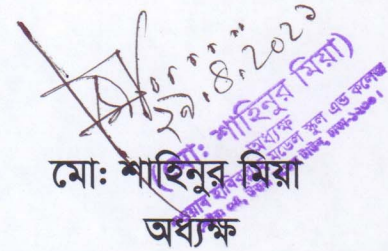 ২৯.৪.২০২১
(মো: শাহিনুর মিয়া)
অধ্যক্ষ
মডেল স্কুল এন্ড কলেজ
মো: শাহিনুর মিয়া
অধ্যক্ষ